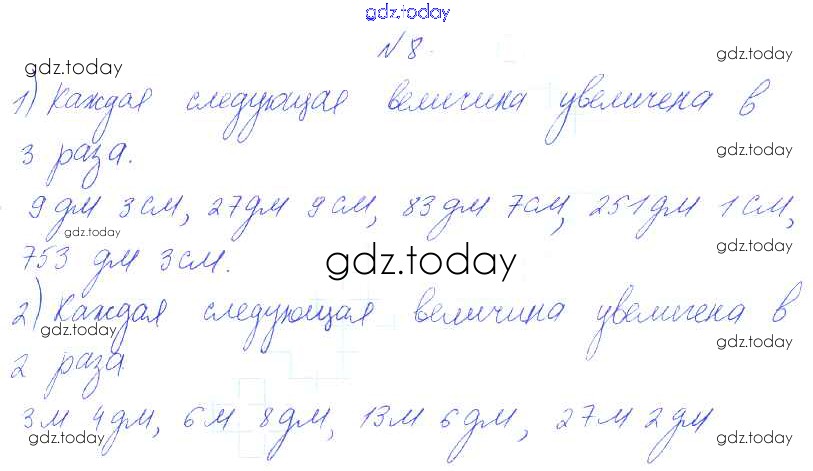 gdz.today
№ 8.
gdz.today
gdz.today
1) Каждая следующая величина увеличена в
3 раза.
gdz.today
9 дм 3 см, 27 дм 9 см, 83 дм 7 см, 251 дм 1 см,
gdz.today
gdz.today
753 дм 3 см.
gdz.today
2) Каждая следующая величина увеличена в
gdz.today
gdz.today
2 раза
3 м 4 дм, 6 м 8 дм, 13 м 6 дм, 27 м 2 дм
gdz.today
gdz.today